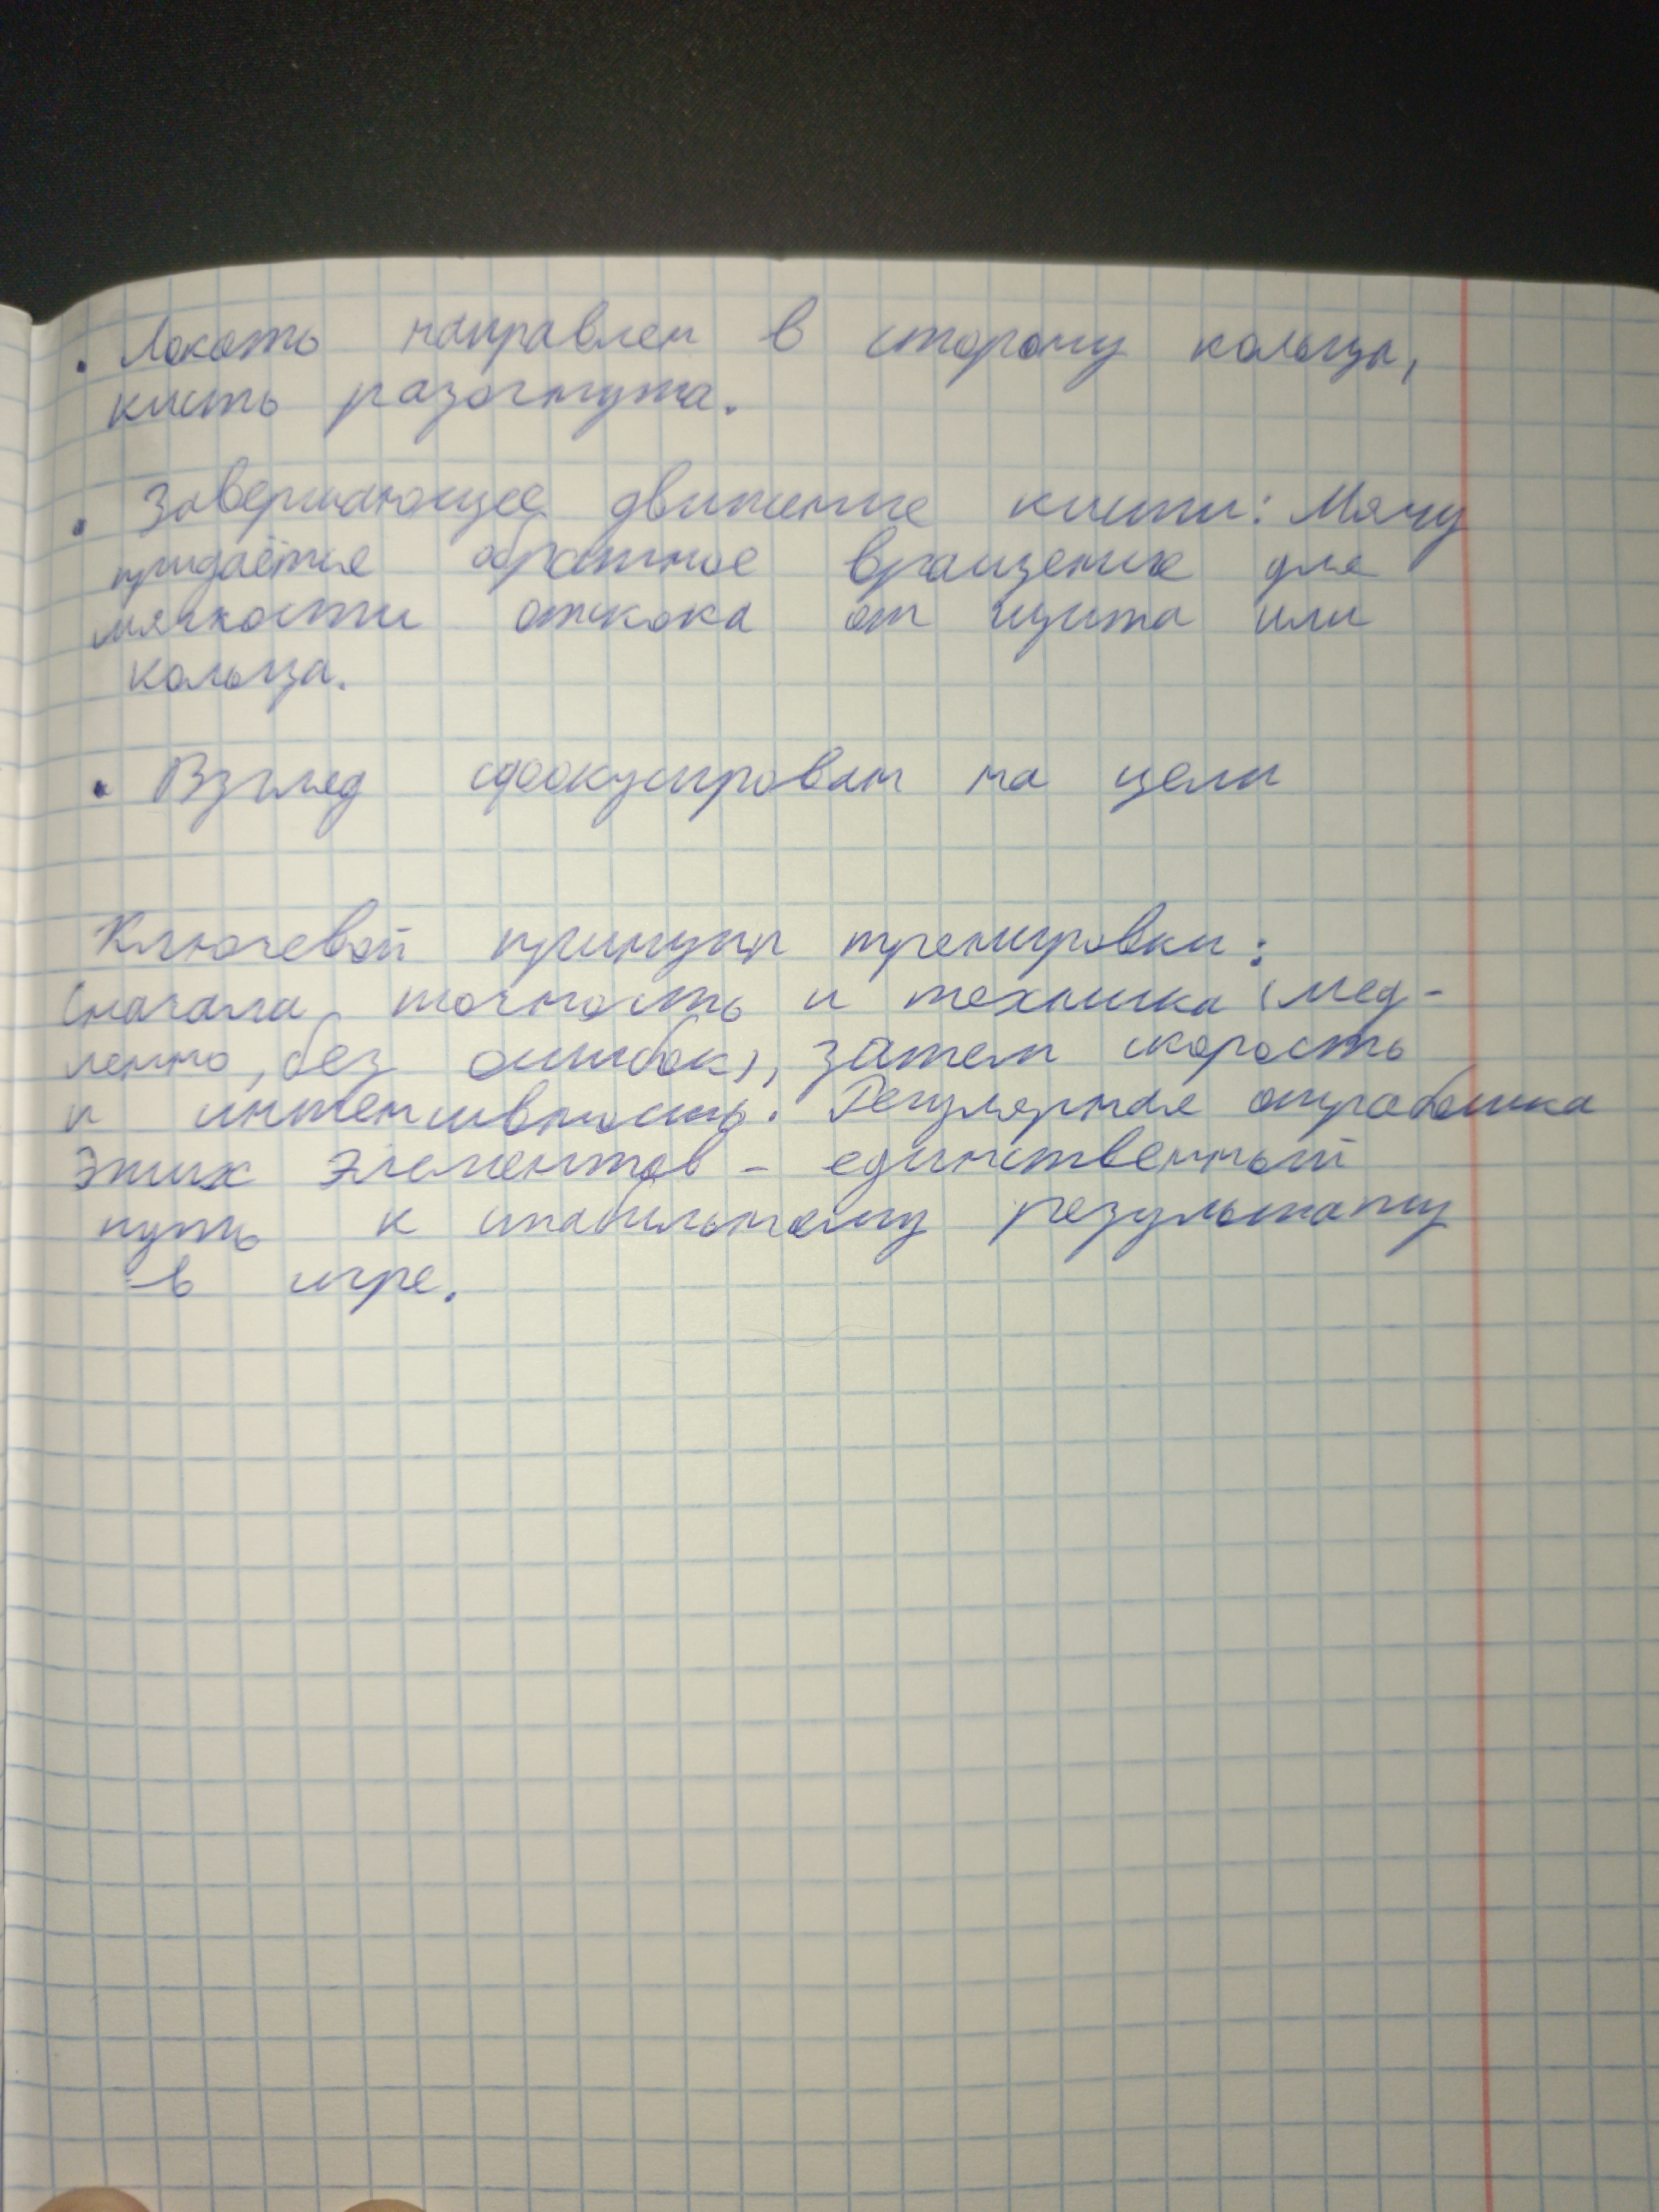 • Локоть направлен в сторону кольца,
кисть разогнута.
• Завершающее движение кисти: Мячу
придаётся обратное вращение для
мягкости отскока от щита или
кольца.
• Взгляд сфокусирован на цели
Ключевой принцип тренировки:
Сначала точность и техника (мед-
ленно, без ошибок), затем скорость
и интенсивность. Регулярная отработка
этих элементов - единственный
путь к стабильному результату
в игре.